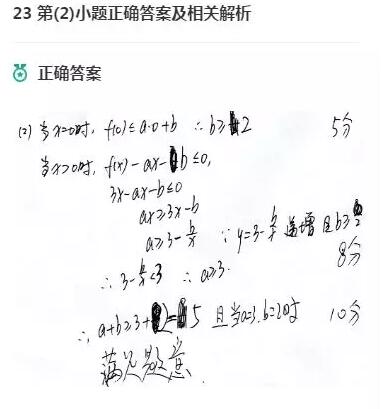 23 第(2)小题正确答案及相关解析
正确答案
(2) 当x=0时, f(0)≤a·0+b ∴b≥2 5分
当x>0时, f(x)-ax-b≤0,
3x-ax-b≤0
ax≥3x-b
a≥3-b/x ∵y=3-b/x 递增 且b≥2
8分
∴3-b/x<3 ∴a≥3.
∴a+b≥3+2=5 且当a=3.b=2时 10分
满足题意.